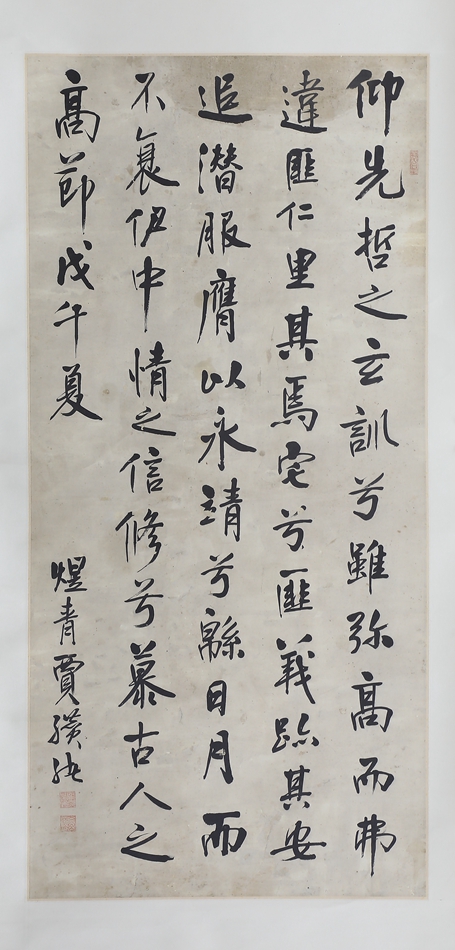 仰先哲之玄訓兮雖弥高而弗
違匪仁里其焉宅兮匪義跡其安
追潜服膺以永靖兮緜日月而
不衰伊中情之信修兮慕古人之
高節戊午夏
煜青賈纘緒